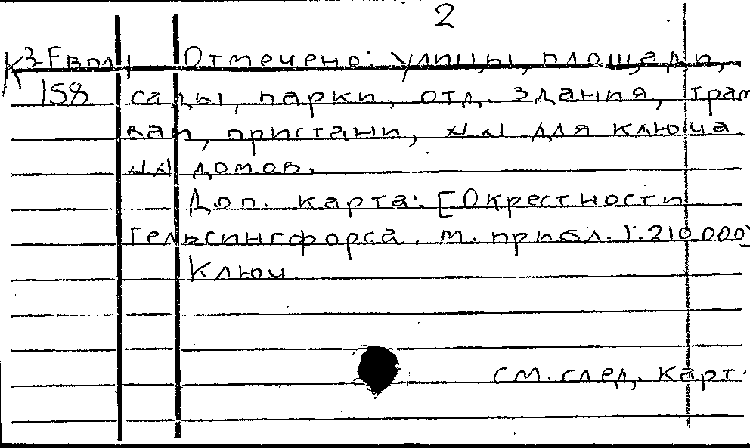 2
К3-Fвпл
Отмечено: улицы, площади,
158 сады, парки, отд. здания, трам
ваи, пристани, №№ для ключа
№№ домов.
Доп. карта: [Окрестности
Гельсингфорса. М. прибл. 1:210.000]
Ключ
см. след. карт.